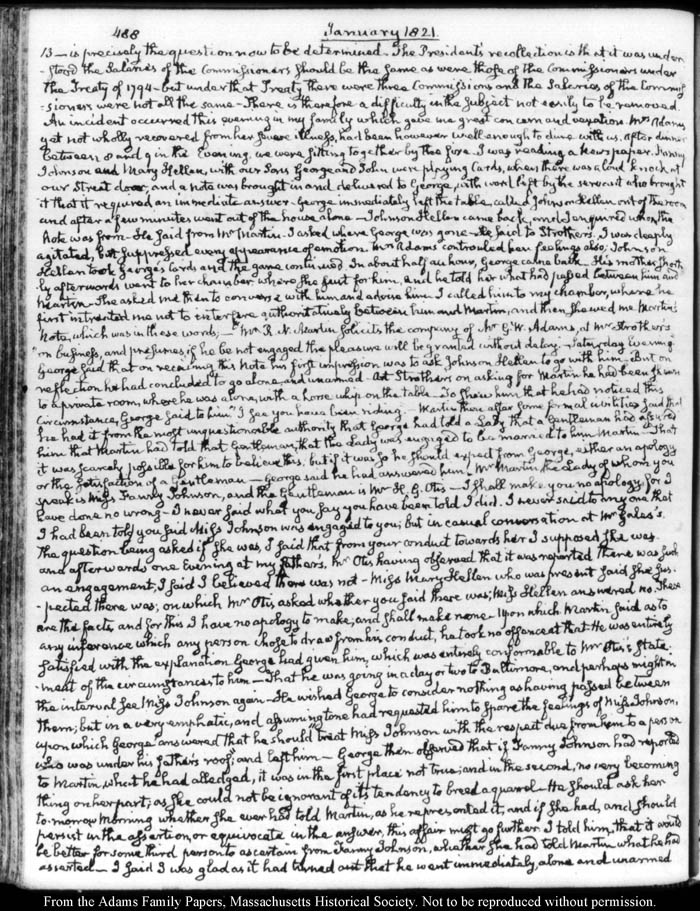 488 January 1821.
13 — is precisely the question now to be determined — The President's recollection is that it was under-
-stood the Salaries of the Commissioners should be the same as were those of the Commissioners under
the Treaty of 1794 — but under that Treaty there were three Commissions and the Salaries of the Commis-
-sioners were not all the same — There is therefore a difficulty in the subject not easily to be removed.
An incident occurred this evening in my family which gave me great concern and vexation. Mrs Adams
yet not wholly recovered from her severe illness, had been however well enough to dine with us. After dinner
between 8 and 9 in the Evening, we were sitting together by the fire. I was reading a Newspaper. Fanny
Johnson and Mary Hellen, with our Sons George and John were playing Cards, when there was a loud knock at
our Street door, and a note was brought in and delivered to George, with word left by the servant who brought
it that it required an immediate answer. George immediately left the table, called Johnson Hellen out of the room
and after a few minutes went out of the house alone — Johnson Hellen came back, and I enquired whom the
Note was from. He said from Mr Martin. I asked where George was gone — He said to Strother's. I was deeply
agitated, but suppressed every appearance of emotion. Mrs Adams controuled her feelings also; Johnson
Hellen took George's Cards and the game continued. In about half an hour, George came back. His mother, short-
ly afterwards went to her chamber, where she sent for him, and he told her what had passed between him and
Martin — She asked me then to converse with him and advise him. I called him to my chamber, where he
first intreated me not to interfere authoritatively between him and Martin, and then shewed me Martin's
Note, which was in these words; — "Mr R. N. Martin solicits the company of Mr G. W. Adams, at Mr Strother's
"on business, and presumes, if he be not engaged the pleasure will be granted without delay — Saturday evening."
George said that on receiving this Note his first impression was to ask Johnson Hellen to go with him — But on
reflection he had concluded to go alone, and unarmed — At Strothers on asking for Martin he had been shewn
to a private room, where he was alone, with a horse whip on the table — To shew him that he had noticed this
circumstance, George said to him "I see you have been riding. — Martin then after some formal civilities said that
he had it from the most unquestionable authority that George had told a Lady that a Gentleman had assured
him that Martin had told that Gentleman, that the Lady was engaged to be married to him Martin — That
it was scarcely possible for him to believe this, but if it was so he should expect from George, either an apology
or the satisfaction of a Gentleman — George said he had answered him — Mr Martin, the Lady of whom you
speak is Miss Fanny Johnson, and the Gentleman is Mr H. G. Otis — I shall make you no apology for I
have done no wrong — I never said what you say you have been told I did. I never said to any one that
I had been told you said Miss Johnson was engaged to you; but in casual conversation at Mr Gales's.
The question being asked if she was, I said that from your conduct towards her I supposed she was.
and afterwards one evening at my father's, Mr Otis having observed that it was reported there was such
an engagement, I said I believed there was not — Miss Mary Hellen who was present said she sus-
-pected there was; on which Mr Otis asked whether you said there was; Miss Hellen answered no. These
are the facts, and for this I have no apology to make, and shall make none. Upon which Martin said as to
any inference which any person chose to draw from his conduct, he took no offence at that. He was entirely
satisfied with the explanation George had given him, which was entirely conformable to Mr Otis's state-
-ment of the circumstances to him — That he was going in a day or two to Baltimore, and perhaps might in
the interval see Miss Johnson again — He wished George to consider nothing as having passed between
them; but in a very emphatic, and assuming tone had requested him to spare the feelings of Miss Johnson,
upon which George answered that he should treat Miss Johnson with the respect due from him to a person
who was under his father's roof; and left him — George then observed that if Fanny Johnson had reported
to Martin, what he had alledged, it was in the first place not true; and in the second, no very becoming
thing on her part; as she could not be ignorant of its tendency to breed a quarrel — He should ask her
to-morrow morning whether she ever had told Martin, as he represented it, and if she had, and should
persist in the assertion, or equivocate in the answer, this affair must go further. I told him, that it would
be better for some third person to ascertain from Fanny Johnson, whether she had told Martin what he had
asserted — I said I was glad as it had turned out that he went immediately, alone and unarmed
From the Adams Family Papers, Massachusetts Historical Society. Not to be reproduced without permission.